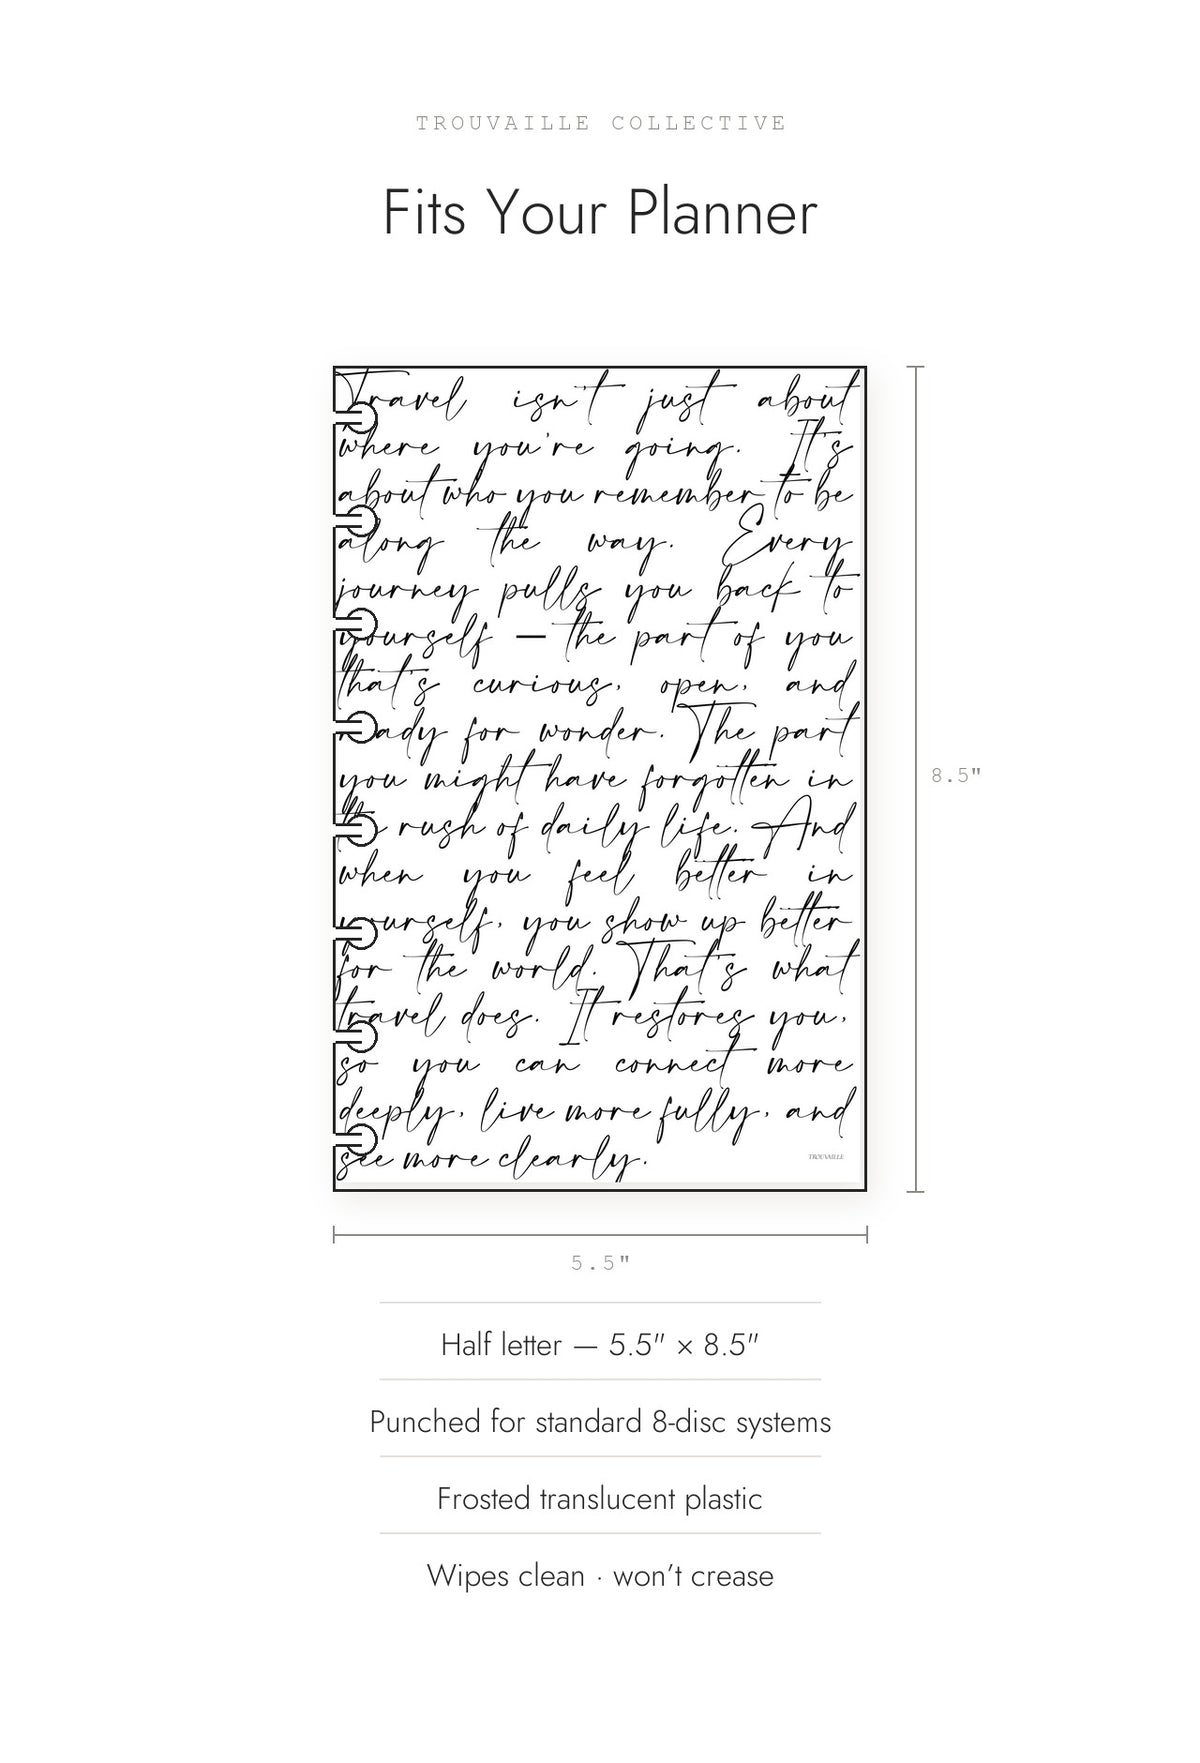 TROUVAILLE COLLECTIVE
Fits Your Planner
Travel isn't just about
where you're going. It's
about who you remember to be
along the way. Every
journey pulls you back to
yourself — the part of you
that's curious, open, and
ready for wonder. The part
you might have forgotten in
the rush of daily life. And
when you feel better in
yourself, you show up better
for the world. That's what
travel does. It restores you,
so you can connect more
deeply, live more fully, and
see more clearly.
TROUVAILLE
8.5"
5.5"
Half letter — 5.5" × 8.5"
Punched for standard 8-disc systems
Frosted translucent plastic
Wipes clean · won't crease